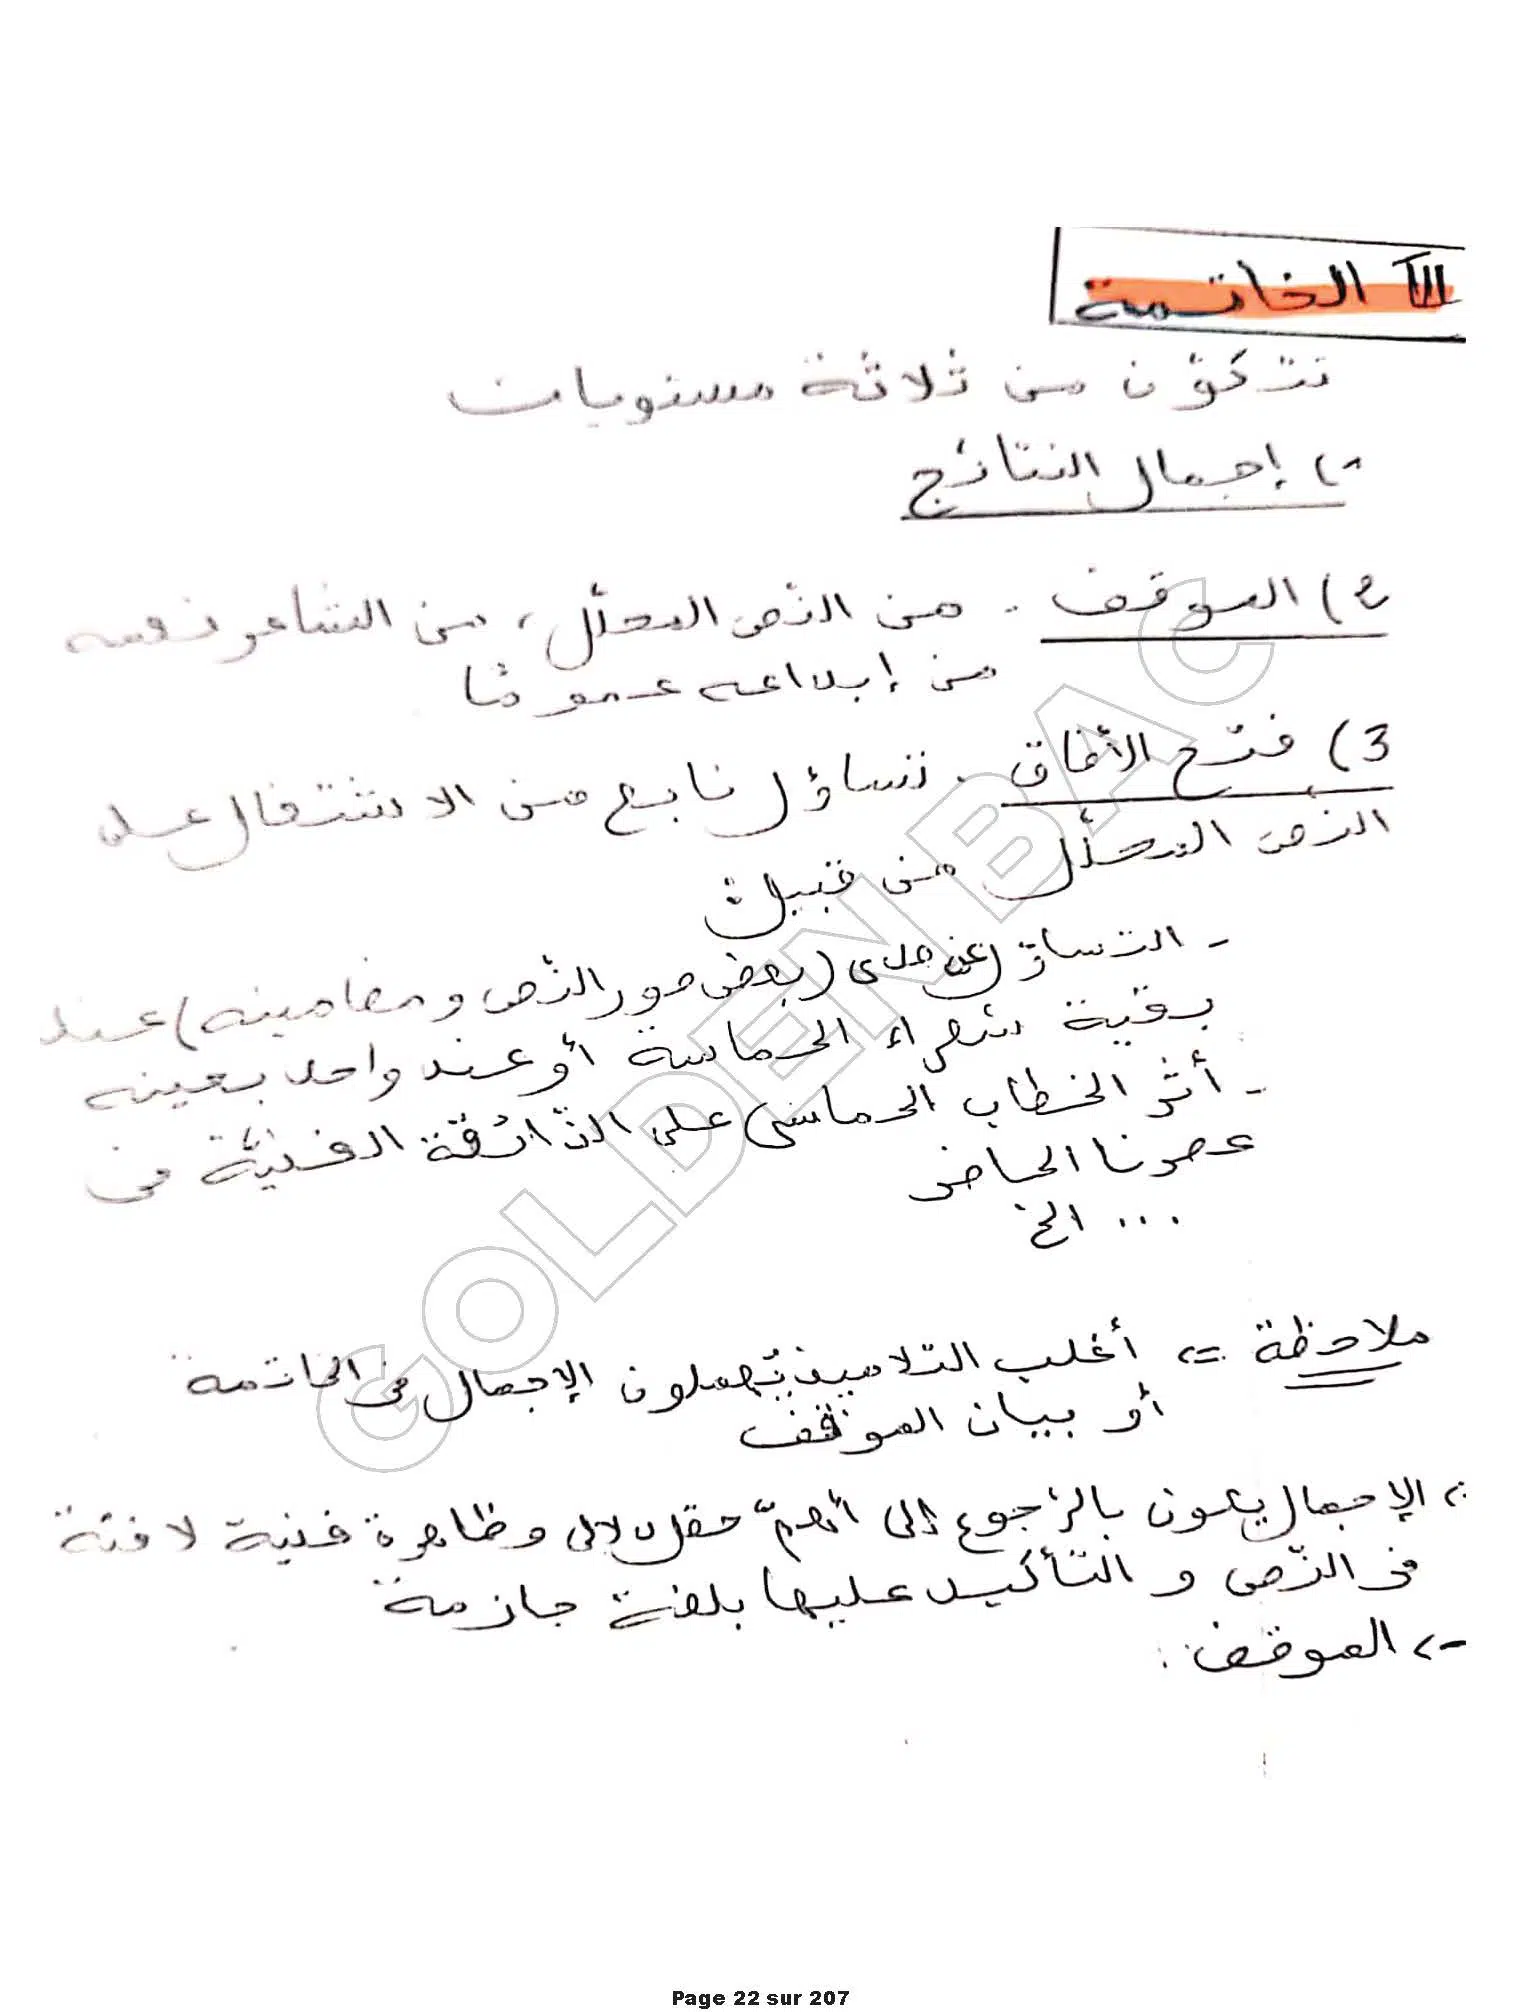 III الخاتمة
تتكوّن من ثلاثة مستويات
1) إجمال النتائج
2) الموقف . من النّص المحلّل، من الشاعر نفسه
من إبداعه عمومًا
3) فتح الأفاق . تساؤل نابع من الاشتغال على
النص المحلّل من قبيل :
- التساؤل عن مدى (بعض صور النّص ومضامينه) عند
بقية شعراء الحماسة أو عند واحد بعينه
- أثر الخطاب الحماسي على الذّائقة الفنيّة في
عصرنا الحاضر
... الخ
ملاحظة => أغلب التلاميذ يُهملون الإجمال في الخاتمة
أو بيان الموقف
-> الإجمال يكون بالرّجوع إلى أهمّ حقل دلالي وظاهرة فنية لافتة
في النّص و التّأكيد عليها بلغة جازمة
-> الموقف :
GOLDEN BAC
Page 22 sur 207